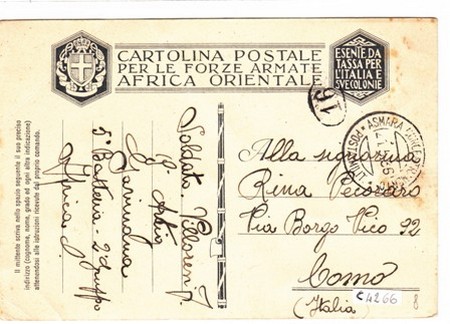 CARTOLINA POSTALE
PER LE FORZE ARMATE
AFRICA ORIENTALE
ESENTE DA
TASSA PER
L'ITALIA E
SVE COLONIE
Il mittente scriva nello spazio seguente il suo preciso
indirizzo (cognome, nome, grado ed ogni altra indicazione)
attenendosi alle istruzioni ricevute dal proprio comando.
Soldato
5° Batteria - 2° Gruppo
Africa
ASMARA
Alla signorina
Rina
Via Borgo Vico 92
Como
(Italia)
C4266
8